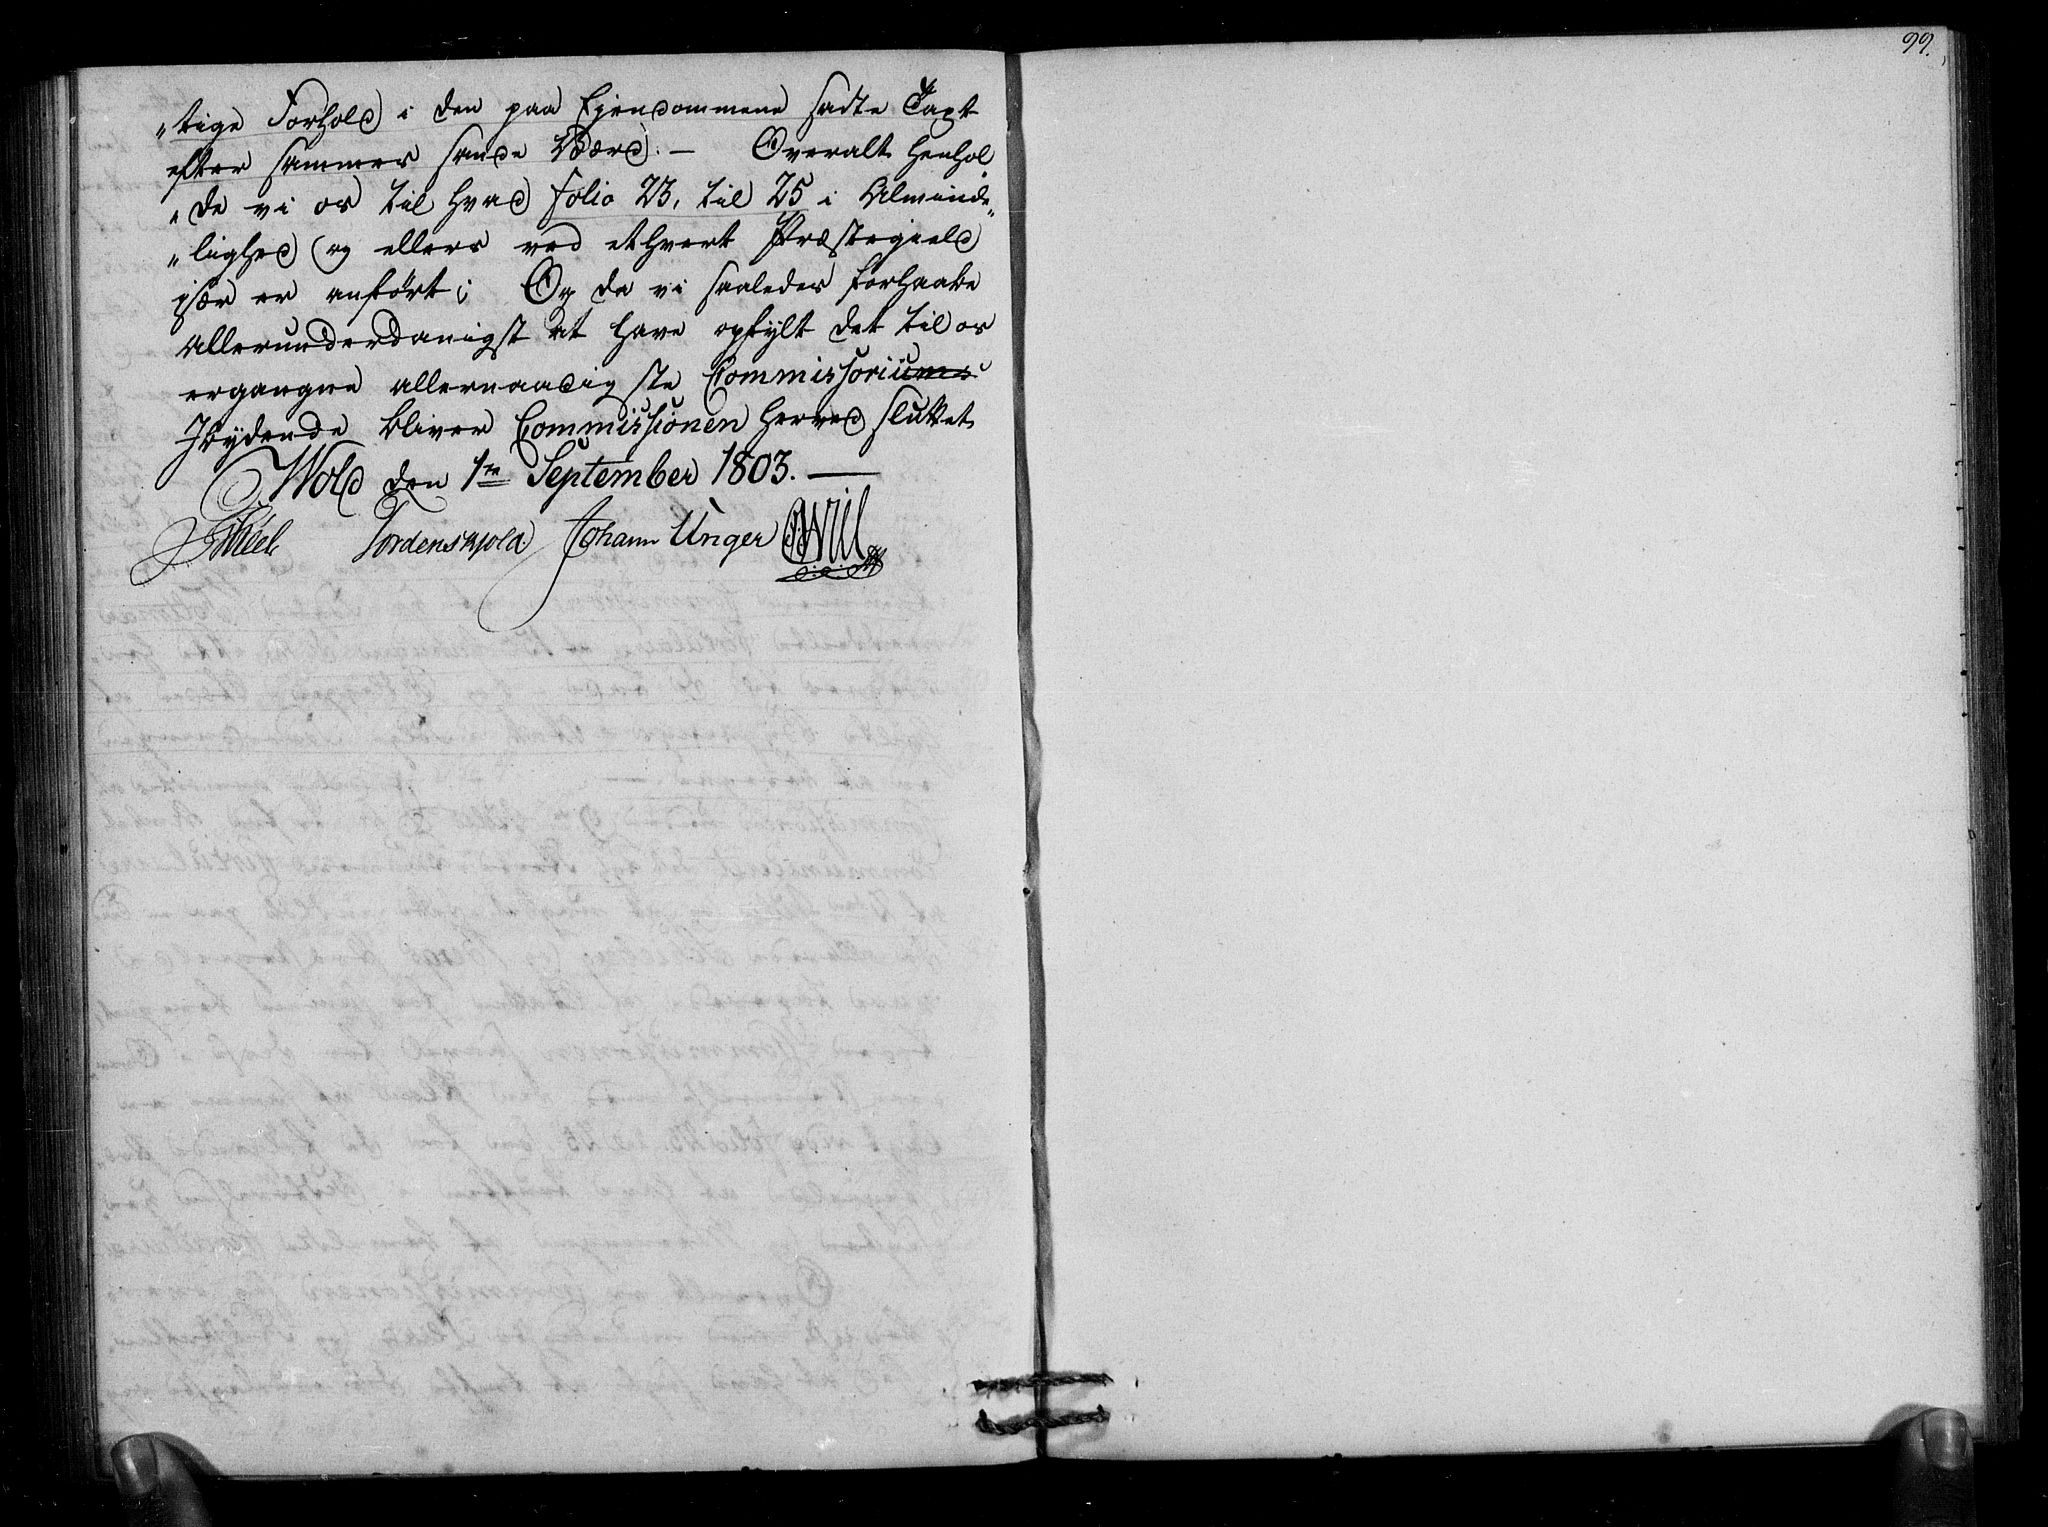 99.
„tige Forhold i den paa Ejendommene sadte Taxt
efter sammes sande Værd. — Overalt henhol
„de vi os til hvad folio 23, til 25 i Alminde„
„lighed og ellers ved ethvert Præstegield
især er anført; Og da vi saaledes forhaabe
allerunderdanigst at have opfylt det til os
ergangne allernaadigste Commissoriums
Jbydende bliver Commissionen herved sluttet
Wold den 1te September 1803. —
Tordenskjold Johann Unger OWill